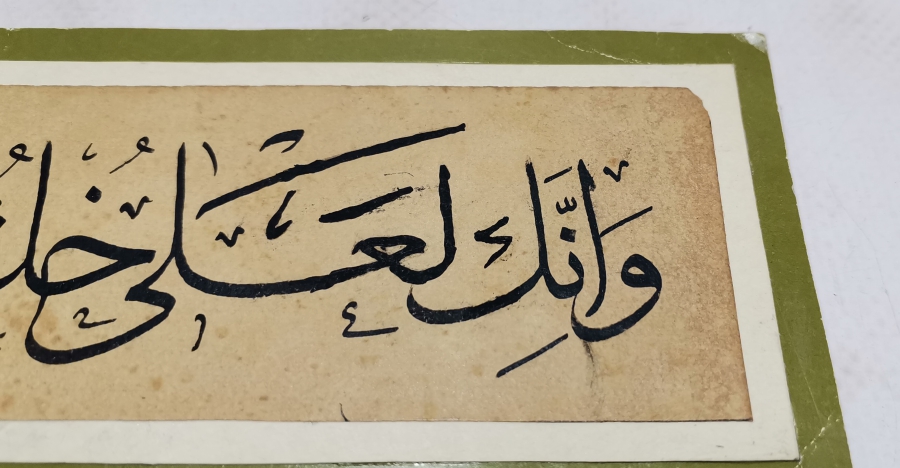 وَإِنَّكَ لَعَلىٰ خُلُ